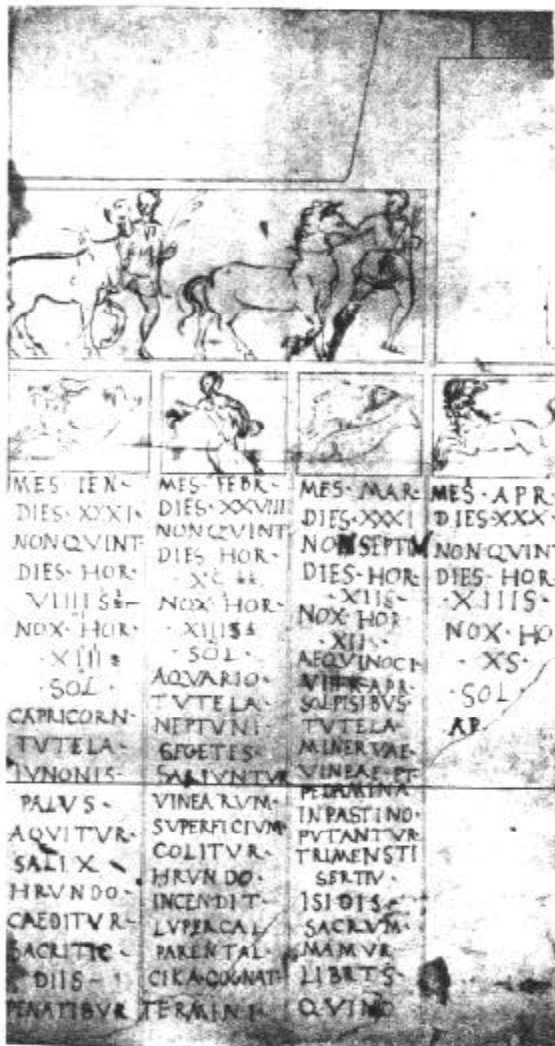 MES· IEN·
DIES· XXXI·
NONQVINT
DIES· HOR·
VIIII S
NOX· HOR·
·XIIII
·SOL·
CAPRICORN·
TVTELA·
IVNONIS·
PALVS·
AQVITVR·
SALIX
HRVNDO·
CAEDITVR·
SACRITIC·
DIIS·
PENATIBVR
MES· FEBR·
DIES· XXVIII
NONQVINT
DIES HOR·
·XC
NOX· HOR·
·XIIIS
·SOL·
AQVARIO·
TVTELA·
NEPTVNI·
SEGETES·
SARIVNTVR
VINEARVM·
SVPERFICIVM·
COLITVR·
HRVNDO·
INCENDIT·
LVPERCAL
PARENTAL·
CIKA·COGNAT·
TERMINI·
MES· MAR·
DIES· XXXI
NONSEPTIM
DIES· HOR·
·XIIS·
NOX· HOR·
·XII·
AEQVINOCI·
VIII·K·APR·
SOLPISIBVS
TVTELA·
MINERVAE·
VINEAE·PT
PEDAMINA
INPASTINO·
PVTANTVR·
TRIMENSTI
SERTIV·
ISIDIS·
SACRVM·
MAMVR
LIBRTS·
QVINO
MES· APR
DIES·XXX·
NONQVINT
DIES· HOR
·XIIIS·
NOX· HO
·XS·
·SOL·
AR·